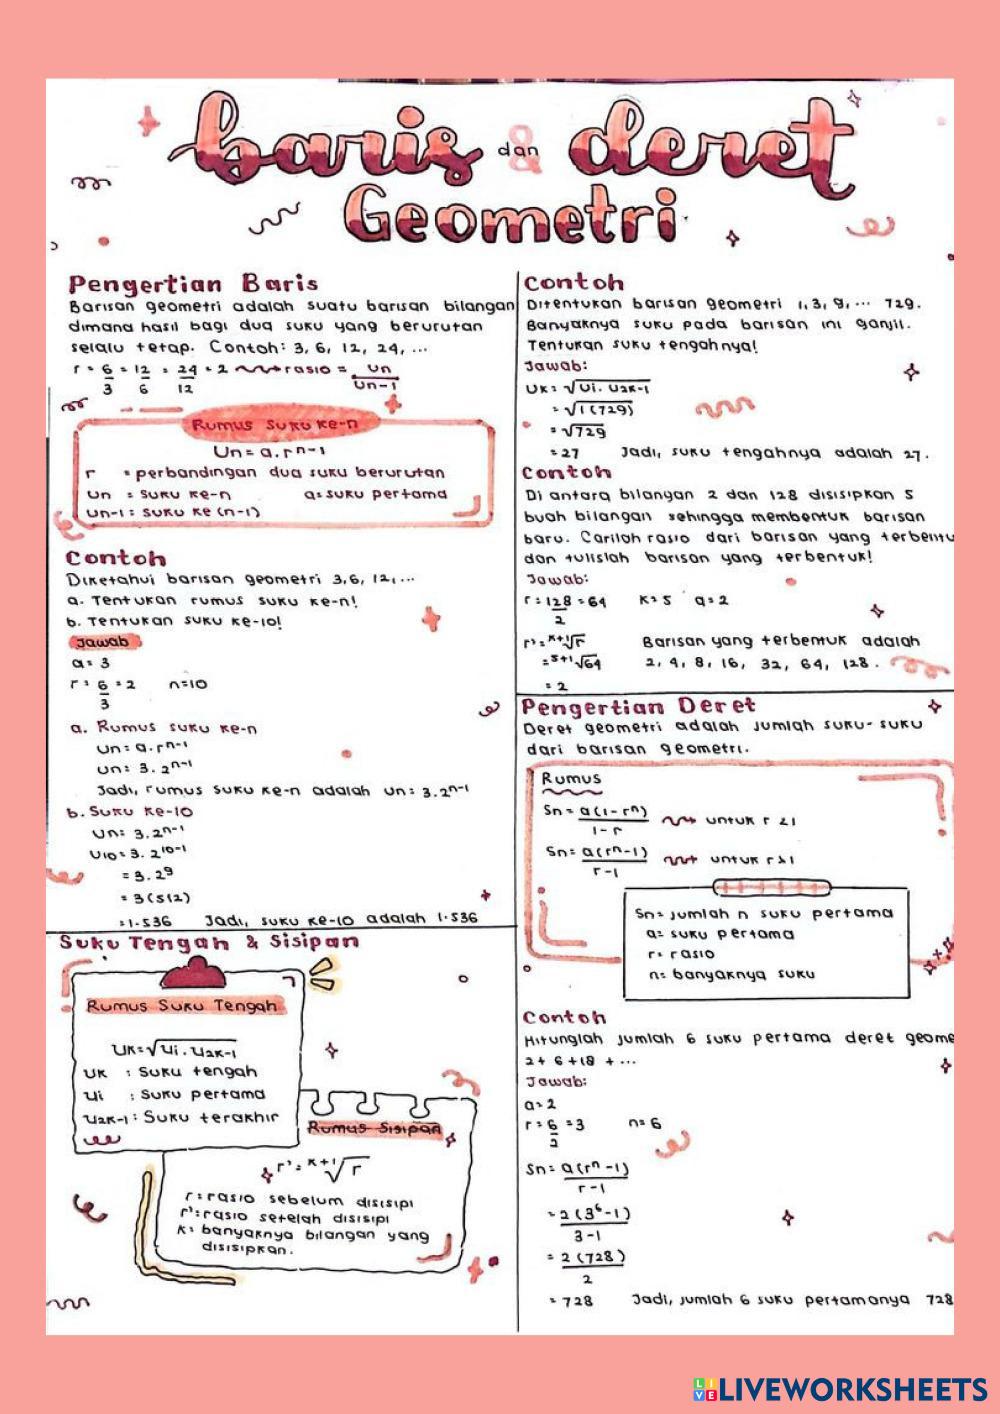 baris dan & deret
Geometri
Pengertian Baris
Barisan geometri adalah suatu barisan bilangan
dimana hasil bagi dua suku yang berurutan
selalu tetap. Contoh: 3, 6, 12, 24, ...
r = 6/3 = 12/6 = 24/12 = 2 → rasio = Un/Un-1
Rumus Suku Ke-n
Un = a.r^n-1
r = perbandingan dua suku berurutan
Un = Suku ke-n a = suku pertama
Un-1 = Suku ke (n-1)
Contoh
Diketahui barisan geometri 3,6,12,...
a. Tentukan rumus suku ke-n!
b. Tentukan suku ke-10!
Jawab
a = 3
r = 6/3 = 2 n=10
a. Rumus suku ke-n
Un = a.r^n-1
Un = 3.2^n-1
Jadi, rumus suku ke-n adalah Un = 3.2^n-1
b. Suku ke-10
Un = 3.2^n-1
U10 = 3.2^10-1
= 3.2^9
= 3(512)
= 1.536 Jadi, suku ke-10 adalah 1.536
Suku Tengah & Sisipan
Rumus Suku Tengah
Uk = √U1.U2k-1
Uk : Suku tengah
U1 : Suku pertama
U2k-1 : Suku terakhir
Rumus Sisipan
r' = k+1√r
r = rasio sebelum disisipi
r' = rasio setelah disisipi
k = banyaknya bilangan yang
disisipkan.
Contoh
Ditentukan barisan geometri 1,3,9,... 729.
Banyaknya suku pada barisan ini ganjil.
Tentukan suku tengahnya!
Jawab:
Uk = √U1.U2k-1
= √1(729)
= √729
= 27 Jadi, suku tengahnya adalah 27.
Contoh
Di antara bilangan 2 dan 128 disisipkan 5
buah bilangan sehingga membentuk barisan
baru. Carilah rasio dari barisan yang terbentu
dan tulislah barisan yang terbentuk!
Jawab:
r = 128/2 = 64 k=5 a=2
r' = k+1√r Barisan yang terbentuk adalah
= 5+1√64 2, 4, 8, 16, 32, 64, 128.
= 2
Pengertian Deret
Deret geometri adalah jumlah suku-suku
dari barisan geometri.
Rumus
Sn = a(1-r^n)/1-r → untuk r<1
Sn = a(r^n-1)/r-1 → untuk r>1
Sn = jumlah n suku pertama
a = suku pertama
r = rasio
n = banyaknya suku
Contoh
Hitunglah jumlah 6 suku pertama deret geome
2+6+18+...
Jawab:
a=2
r = 6/2 = 3 n=6
Sn = a(r^n-1)/r-1
= 2(3^6-1)/3-1
= 2(728)/2
= 728 Jadi, jumlah 6 suku pertamanya 728
LIVE LIVEWORKSHEETS